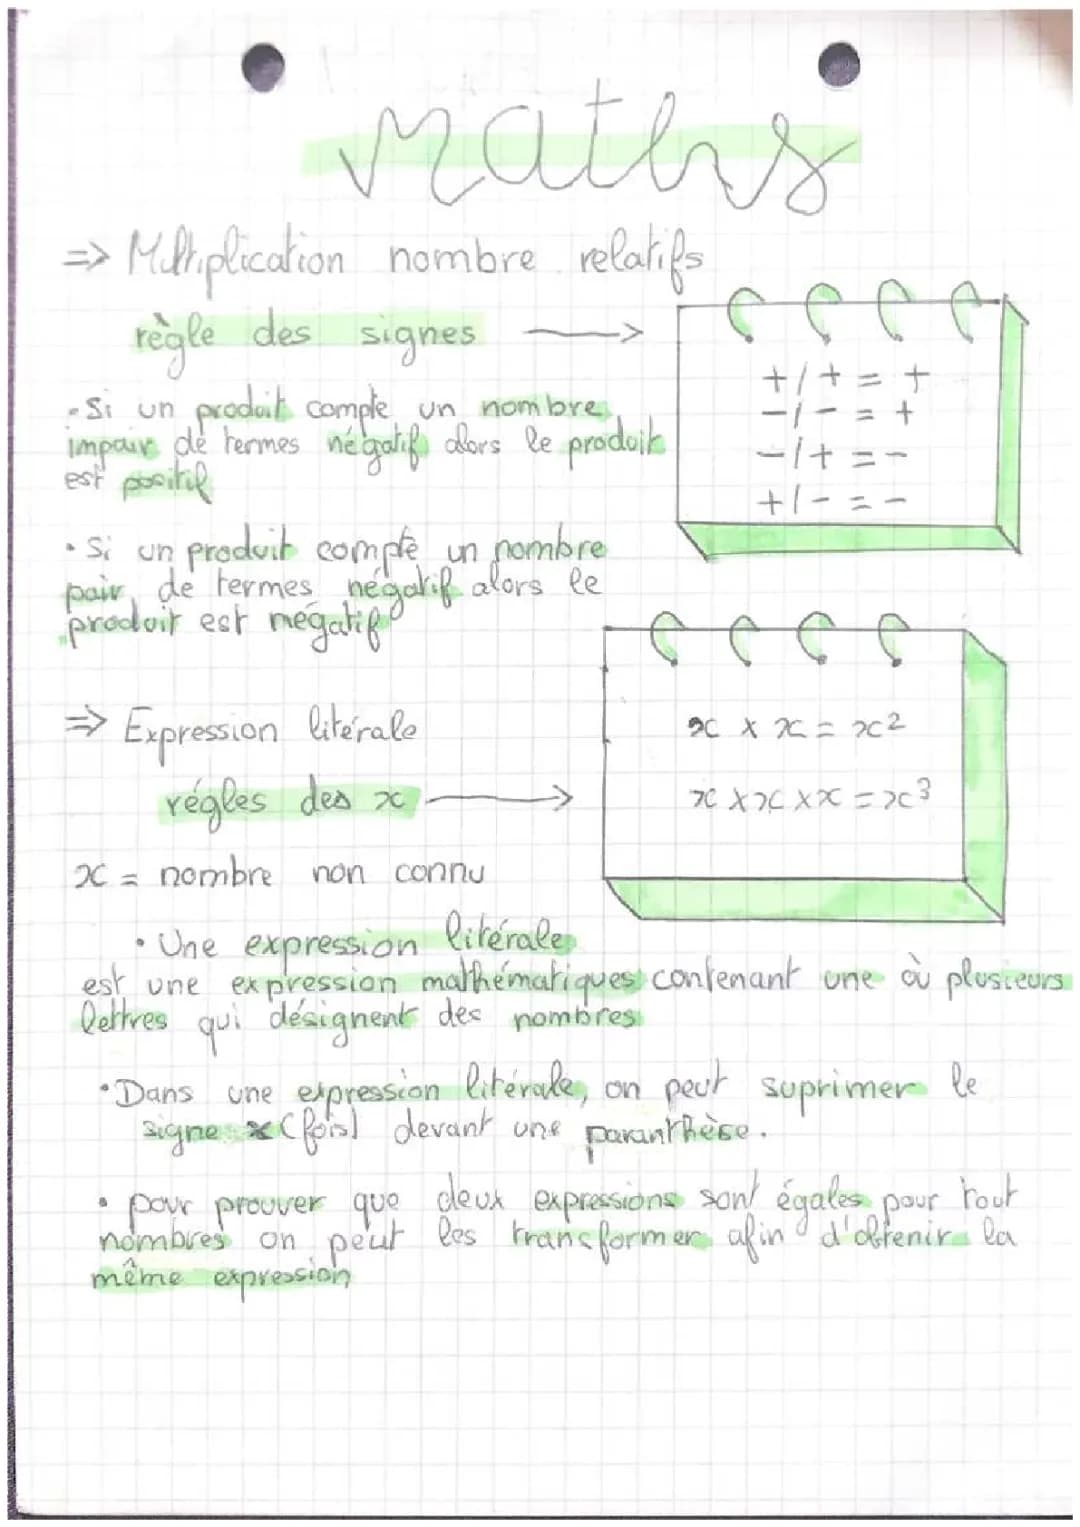 maths
=> Multiplication nombre relatifs
règle des signes
+/+ = +
-/- = +
-/+ = -
+/- = -
• Si un produit compte un nombre
impair de termes négatif alors le produit
est positif
• Si un produit compte un nombre
pair de termes négatif alors le
produit est négatif
=> Expression litérale
régles des x
x × x = x²
x × x × x = x³
x = nombre non connu
• Une expression litérale
est une expression mathématiques contenant une où plusieurs
lettres qui désignent des nombres
• Dans une expression litérale, on peut suprimer le
signe × (fois) devant une paranthèse.
• pour prouver que deux expressions sont égales pour tout
nombres on peut les transformer afin d'obtenir la
même expression